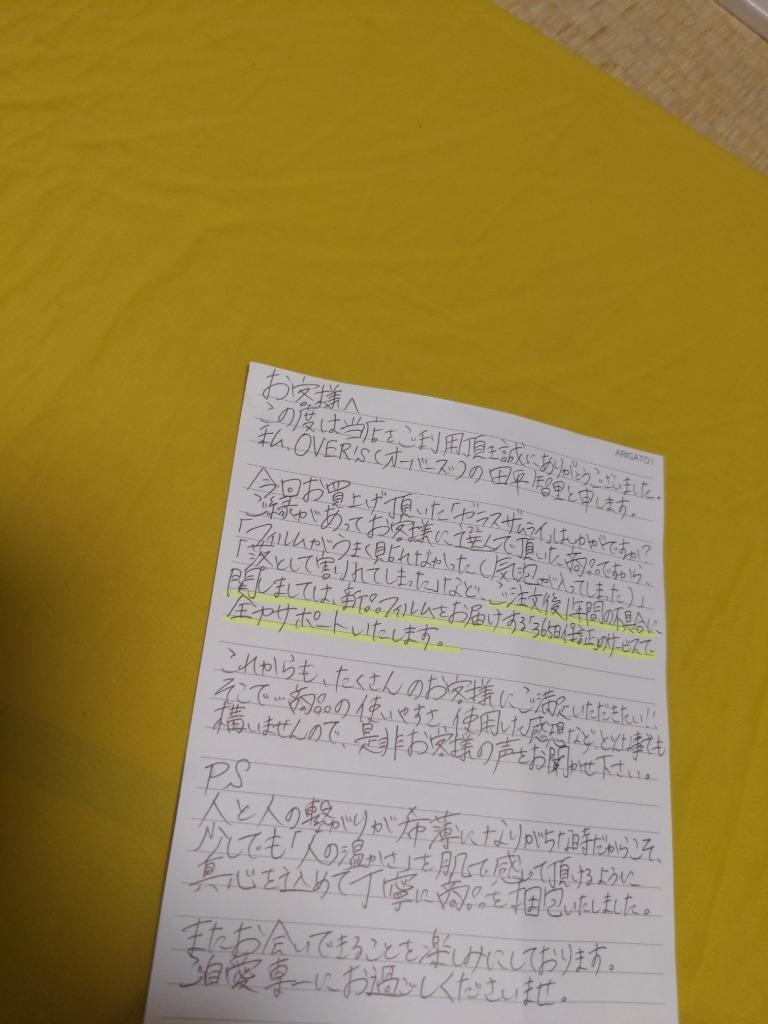 ARIGATO!
お客様へ
この度は当店をご利用頂き誠にありがとうございました。
私、OVER's(オーバーズ)の田平智里と申します。
今回お買上げ頂いた「ガラスザムライ」はいかがですか?
ご縁があってお客様に選んで頂いた商品ですから、
「フィルムがうまく貼れなかった(気泡が入ってしまった)」
「落として割りれてしまった」など、ご注文後1年間の不具合に
関しましては、新品フィルムをお届けする「365日保証」のサービスで
全力サポートいたします。
これからも、たくさんのお客様にご満足いただきたい!!
そこで…商品の使いやすさ、使用した感想など、どんな事でも
構いませんので、是非お客様の声をお聞かせ下さい。
PS
人と人の繋がりが希薄になりがちな時だからこそ、
少しでも「人の温かさ」を肌で感じて頂けるように
真心を込めて丁寧に商品を梱包いたしました。
またお会いできることを楽しみにしております。
ご自愛専一にお過ごしくださいませ。